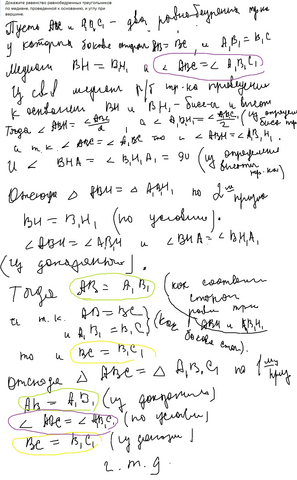 Докажите равенство равнобедренных треугольников
по медиане, проведенной к основанию, и углу при
вершине.
Пусть ABC и A₁B₁C₁ - два равнобедренных тр-ка
у которых боковые стороны AB = BC и A₁B₁ = B₁C₁
Медианы BH = B₁H₁ и ∠ABC = ∠A₁B₁C₁
Из св-в медиан р/б тр-ка проведен
к основанию BH и B₁H₁ - бисс-и и высот
Тогда ∠ABH = ∠ABC/2, а ∠A₁B₁H₁ = ∠A₁B₁C₁/2 (из определ
бисс тр-ка)
и т.к. ∠ABC = ∠A₁B₁C₁ то и ∠ABH = ∠A₁B₁H₁
и ∠BHA = ∠B₁H₁A₁ = 90 (из определения
высоты тр-ка)
Отсюда △ABH = △A₁B₁H₁ по 2му
призн
BH = B₁H₁ (по условию).
∠ABH = ∠A₁B₁H₁ и ∠BHA = ∠B₁H₁A₁
(из доказанных).
Тогда AB = A₁B₁ (как соответ
сторон
равн тр-в
ABH и A₁B₁H₁
и т.к. AB = BC
и A₁B₁ = B₁C₁ (как боковые стор).
то и BC = B₁C₁
Отсюда △ABC = △A₁B₁C₁ по 1му
приз
AB = A₁B₁ (из доказанного)
∠ABC = ∠A₁B₁C₁ (по условию)
BC = B₁C₁ (из доказан)
ч.т.д.